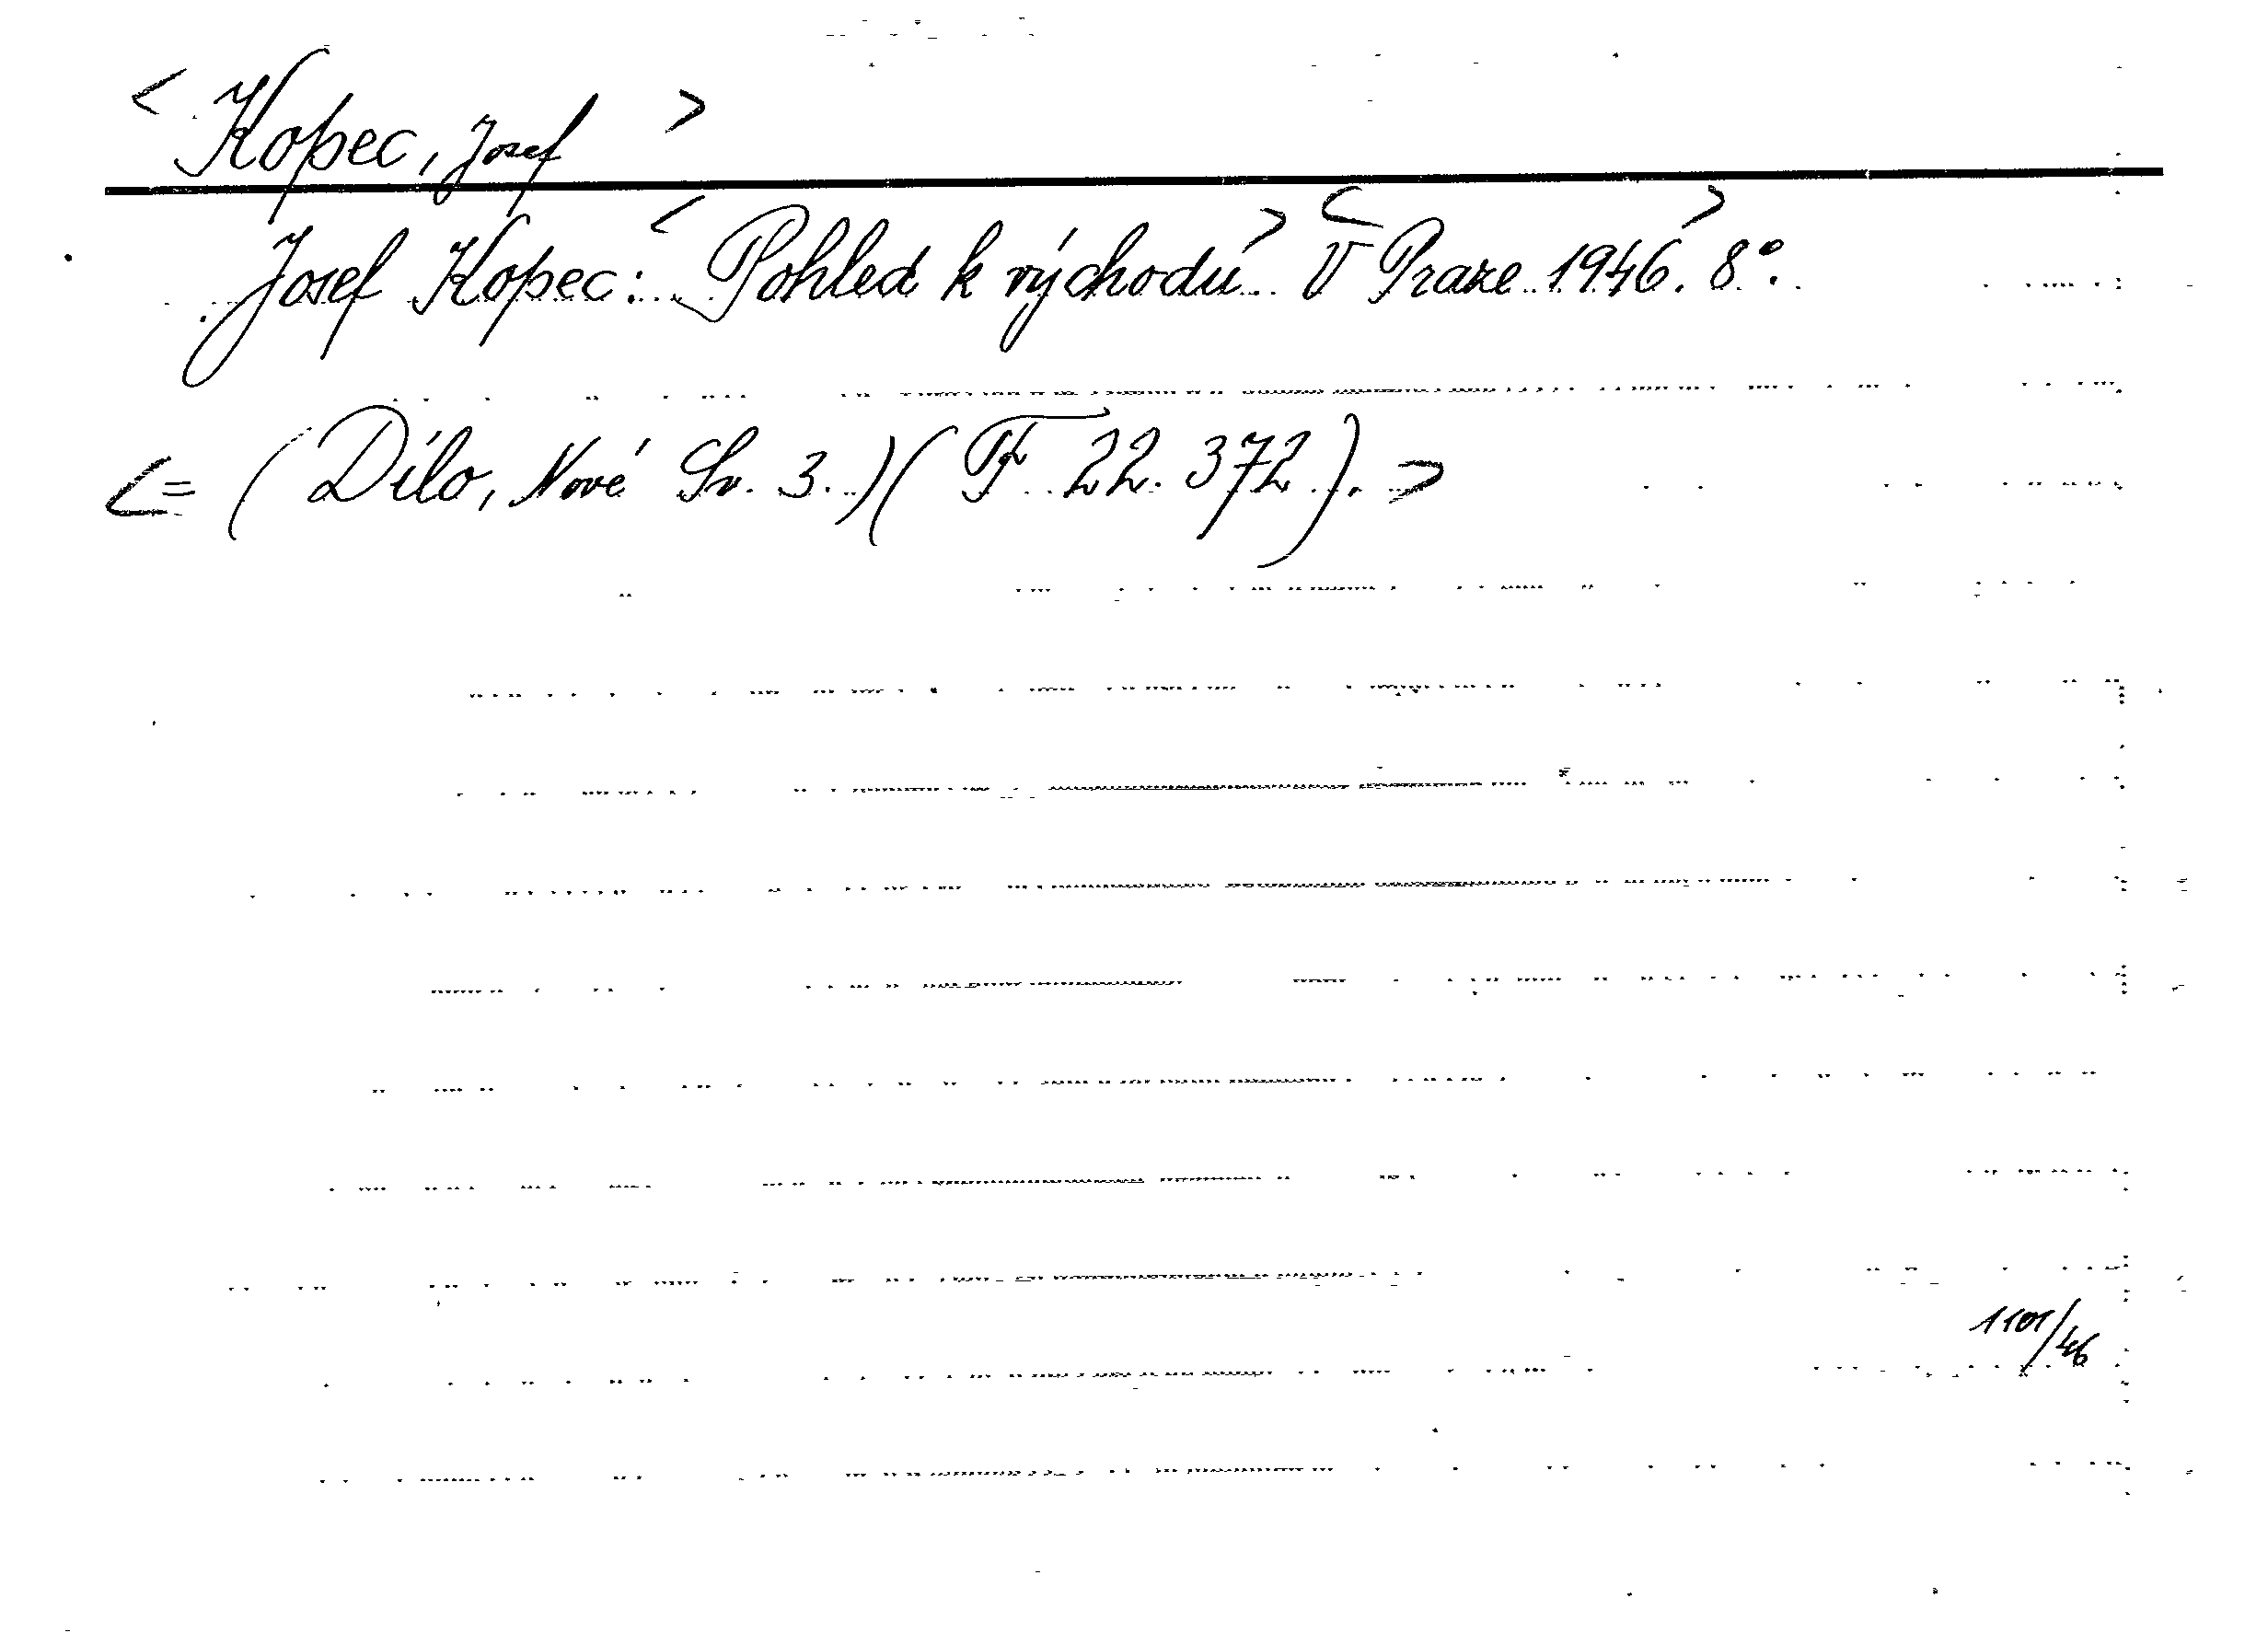 < Kopec, Josef >
Josef Kopec: < Pohled k východu > < V Praze 1946. > 8°.
<= (Dílo, Nové Sv. 3.) (F 22. 372). >
1101/46